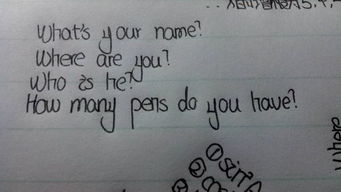 What's your name?
Where are you?
Who is he?
How many pens do you have?
① 
②
where